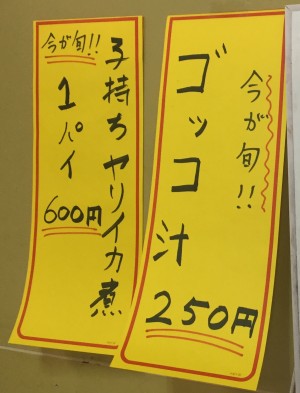 今が旬!!
ゴッコ汁
250円
今が旬!!
子持ちヤリイカ煮
1パイ
600円